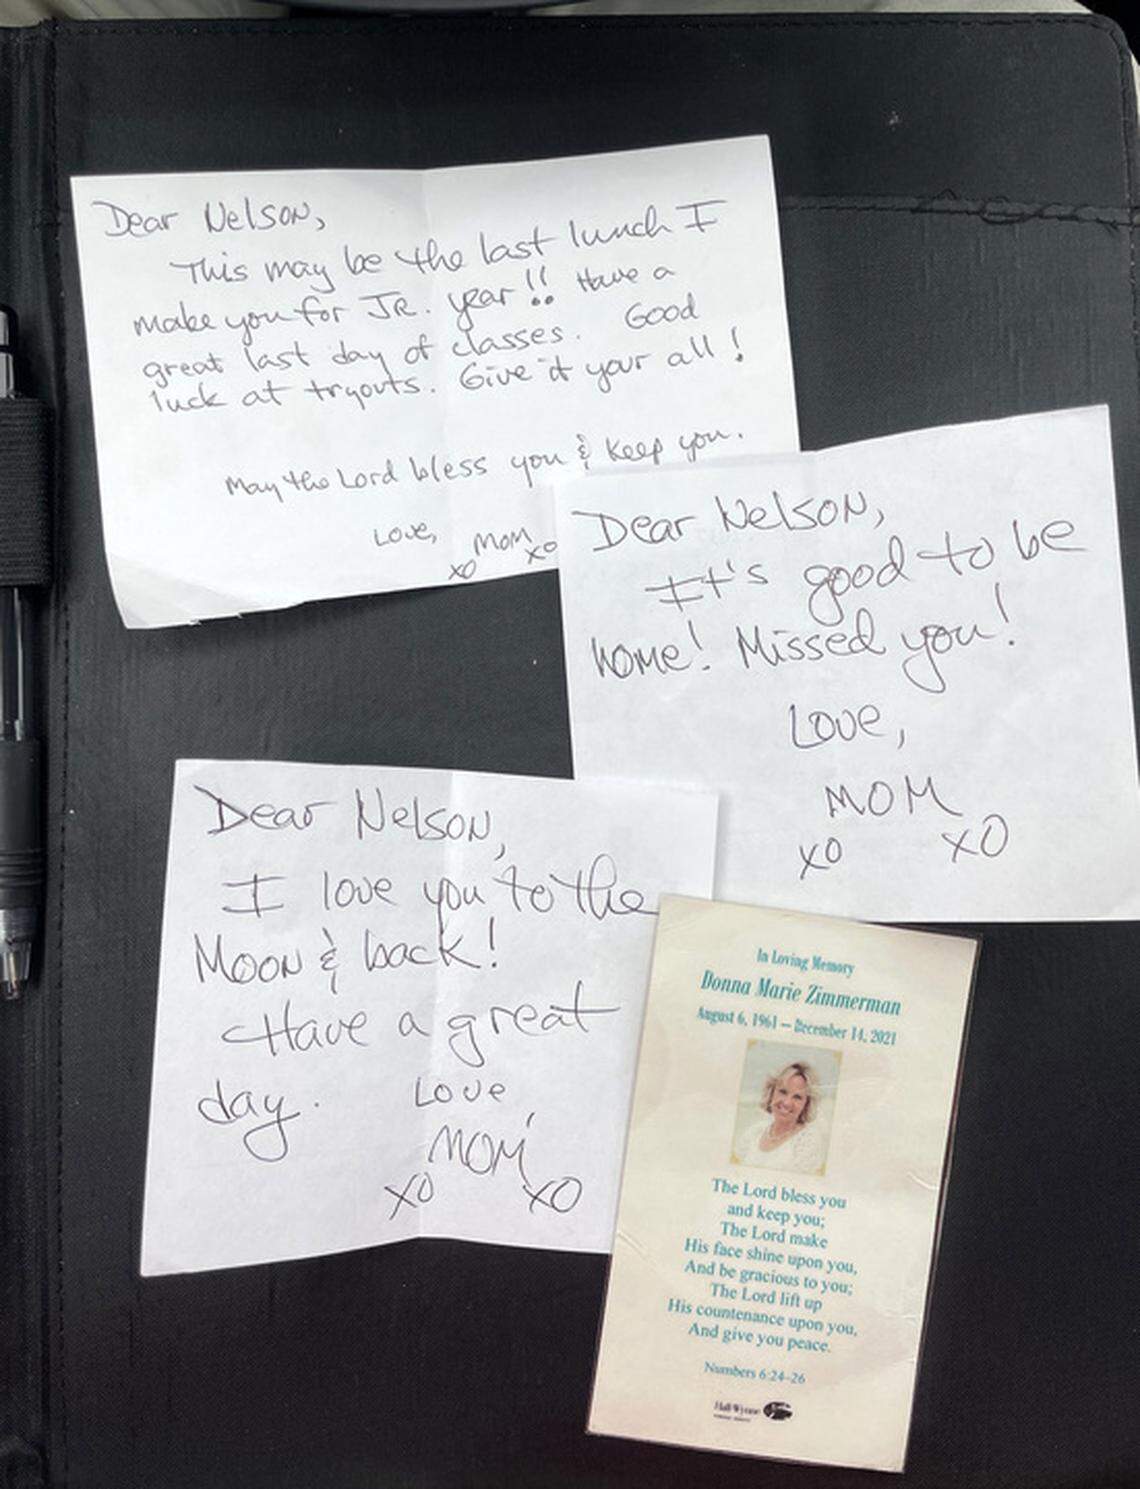 Dear Nelson,
This may be the last lunch I
make you for JR. year!! Have a
great last day of classes. Good
luck at tryouts. Give it your all!
May the Lord bless you & keep you.
Love, Mom
xo xo
Dear Nelson,
It's good to be
home! Missed you!
Love,
MOM
XO XO
Dear Nelson,
I love you to the
Moon & back!
Have a great
day. Love,
MOM
XO XO
In Loving Memory
Donna Marie Zimmerman
August 6, 1961 – December 14, 2021
The Lord bless you
and keep you;
The Lord make
His face shine upon you,
And be gracious to you;
The Lord lift up
His countenance upon you,
And give you peace.
Numbers 6:24–26
Hall-Wynne